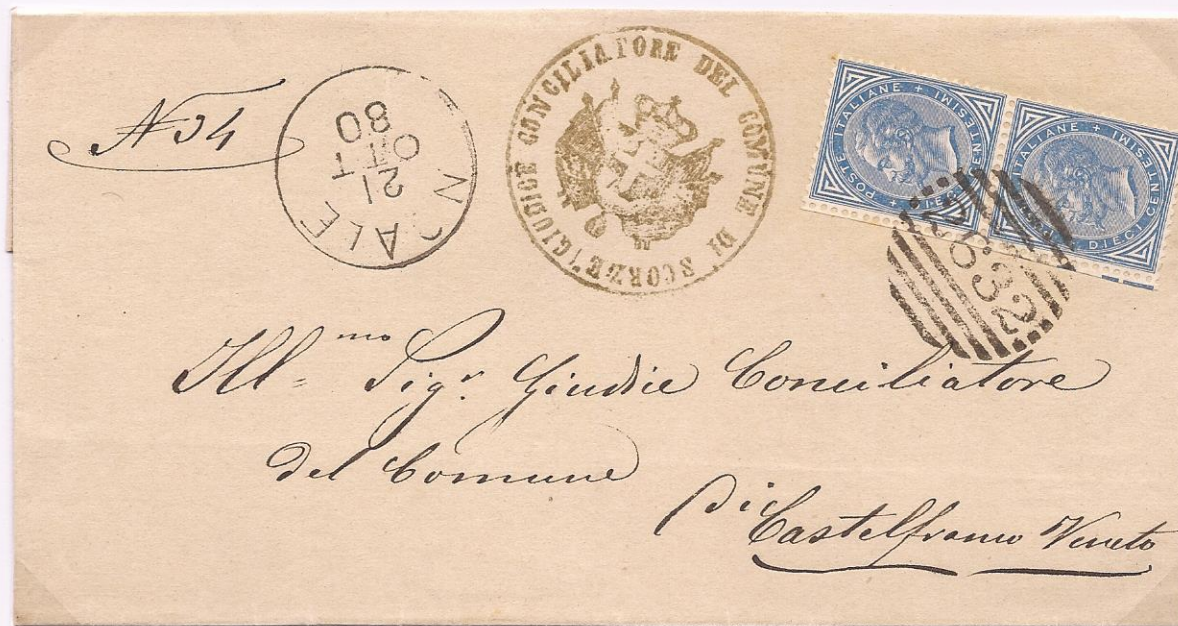 N 34
NOALE
21
OTT
80
GIUDICE CONCILIATORE DEL COMUNE DI SCORZE'
POSTE ITALIANE + DIECI CENTESIMI
POSTE ITALIANE + DIECI CENTESIMI
2632
Ill.mo Sigr. Giudice Conciliatore
del Comune
di
Castelfranco Veneto